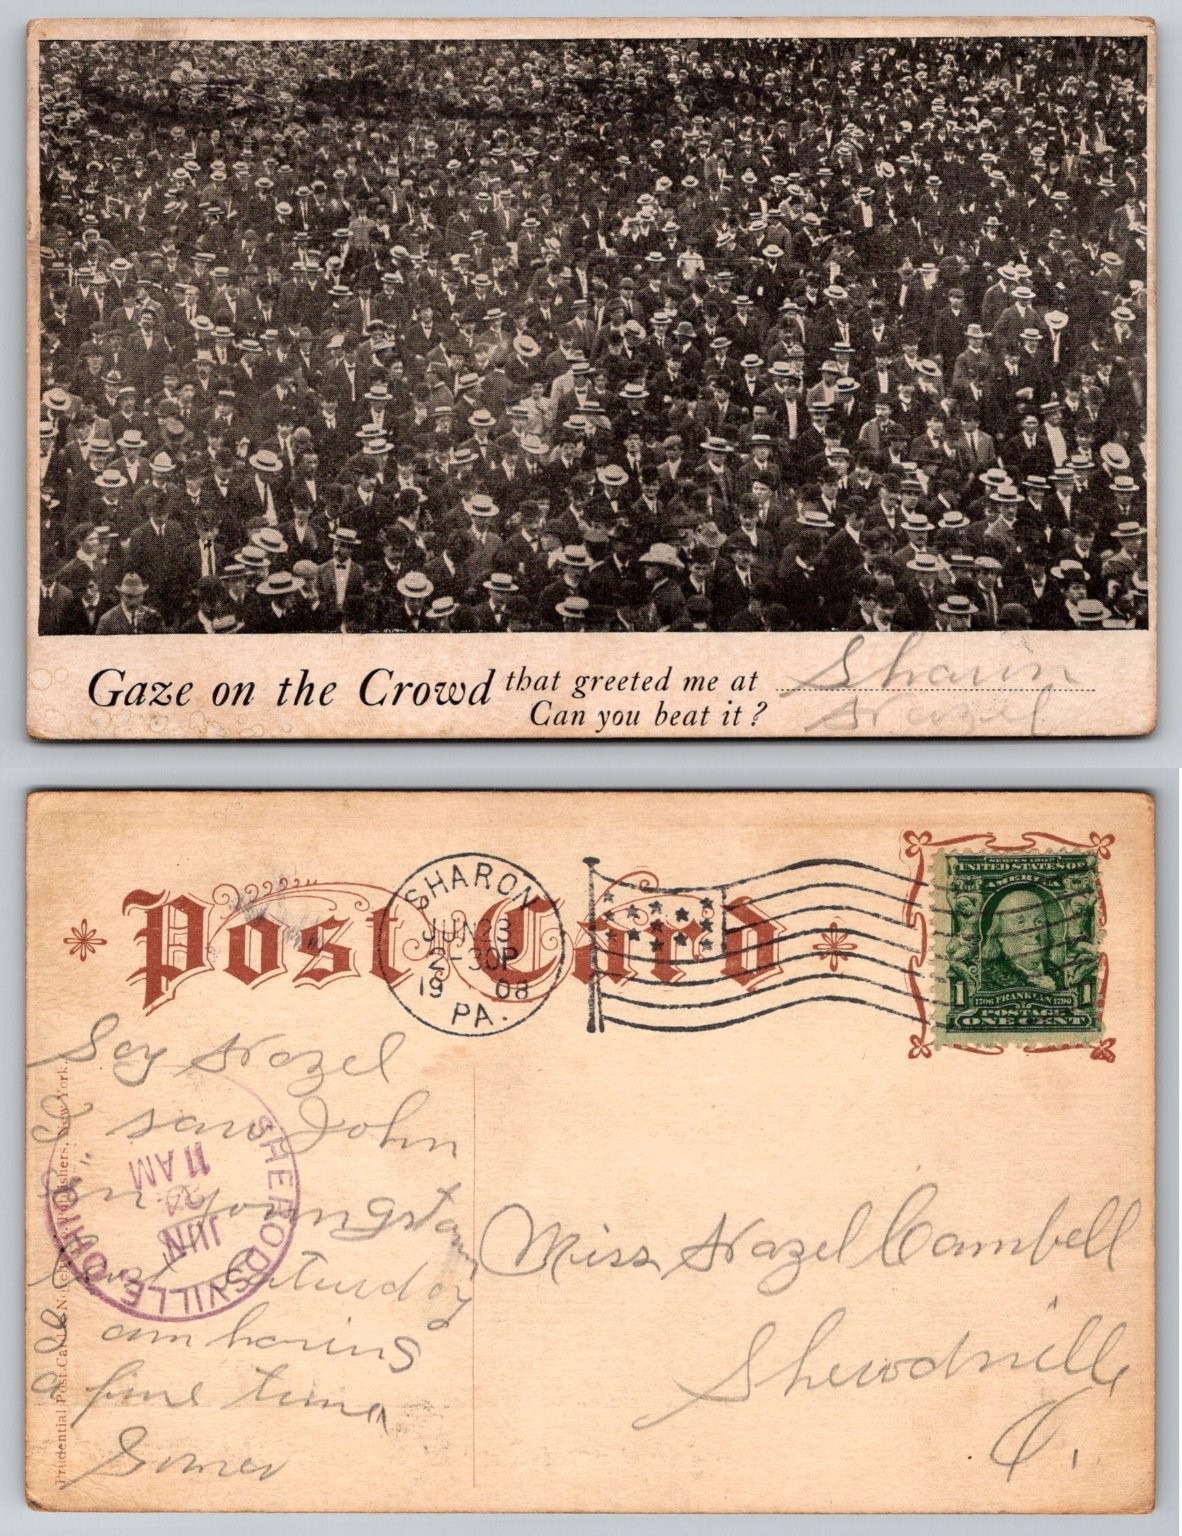 Gaze on the Crowd that greeted me at Sharon
Can you beat it? Hazel
Post Card
SHARON
JUN 23
2-30P
1908
PA.
SERIES 1902
UNITED STATES OF
AMERICA
1706 FRANKLIN 1790
1 POSTAGE 1
ONE CENT
Say Hazel
I saw John
in Youngstown
last Saturday
am having
a fine time
SHERODSVILLE, OHIO.
JUN
24
11 AM
Prudential Post Card Publishers, New York.
Miss Hazel Cambell
Sherodsville
O.